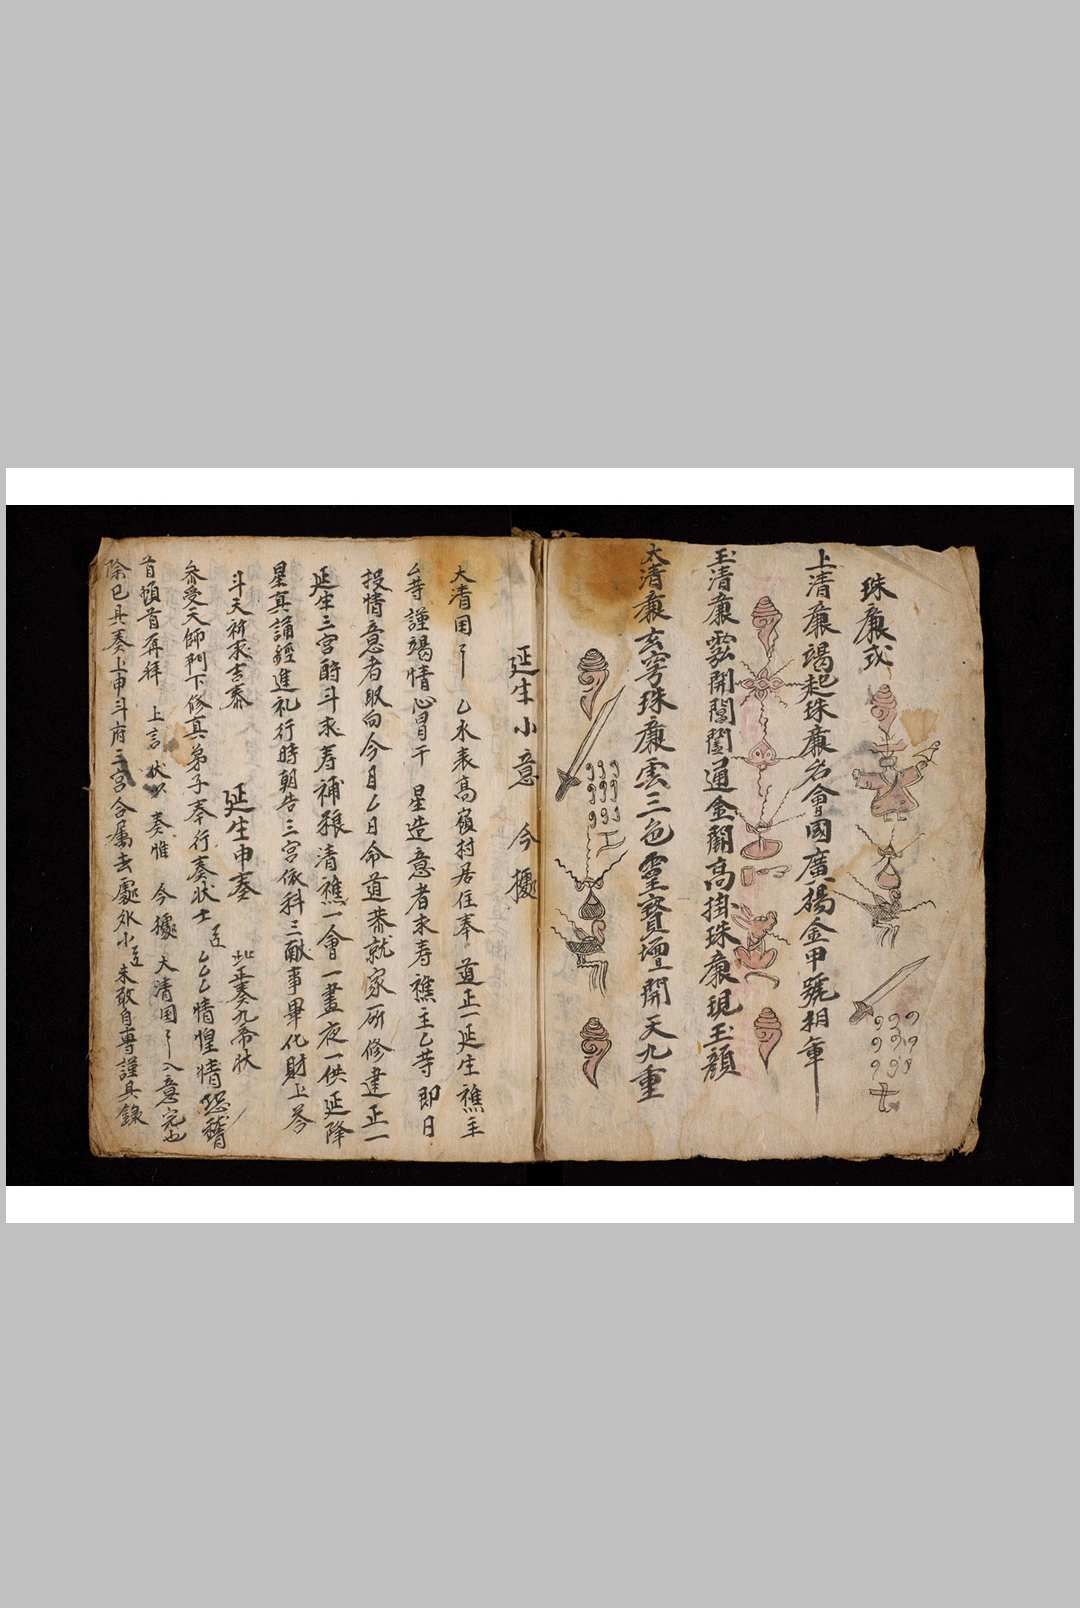 珠簾式
上清簾竭起珠簾名會國廣揚金甲號相車
玉清簾雲開閶闔通金闕高掛珠簾現玉顏
太清簾玄穹珠簾雲三色靈寶壇開天九重
延生小意 今據
大清国 乙水表高嶺村居住奉 道正一延生醮主
厶等謹竭情心冒干 星造意者未寿醮主厶等即日
投情意者取向今月厶日命道恭就家研修建正一
延生三宮酧斗求寿補粮清醮一會一晝夜一供延降
星真誦經進礼行時朝告三宮依科三献事畢化財上荅
斗天祈求吉泰 延生申奏 此正奏九帝狀
參受天師判下修真弟子奉行奏狀士 厶厶情惶情恐稽
首頓首再拜 上言狀以奏惟 今據大清国 入意完也
除已具奏上申斗府三宮合属去處外小 未敢自專謹具錄